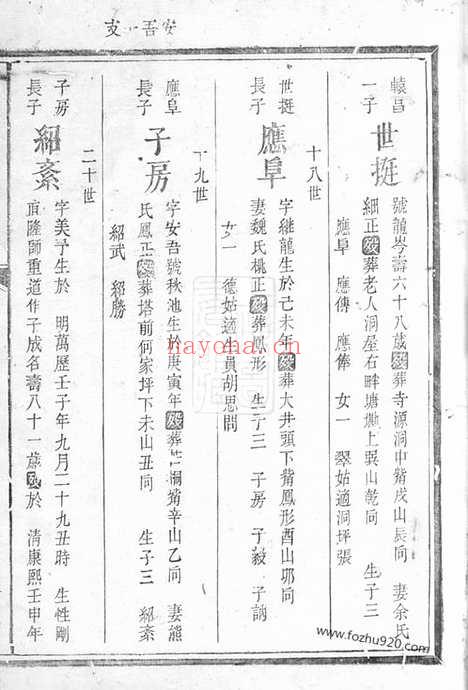 安吾一支
轅昌
一子
世挺
號龍岑壽六十八歲歿葬寺源洞中觜戌山辰向 妻余氏
細正歿葬老人洞屋右畔塘墈上巽山乾向 生子三
應阜 應傳 應俸 女一 翠姑適洞坪張
十八世
世挺
長子
應阜
字継龍生於己未年歿葬大井頭下觜鳳形酉山邜向
妻魏氏桃正歿葬鳳形 生子三 子房 子毅 子訥
女一 德姑適生員胡思問
十九世
應阜
長子
子房
字安吾號秋池生於庚寅年歿葬 洞觜辛山乙向 妻熊
氏鳳正歿葬塔前何家坪下未山丑向 生子三 紹紊
紹武 紹勝
二十世
子房
長子
紹紊
字美予生於 明萬歷壬子年九月二十九丑時 生性剛
直隆師重道作子成名壽八十一歲歿於 清康熙壬申年
hayona.cn
www.fozhu920.com